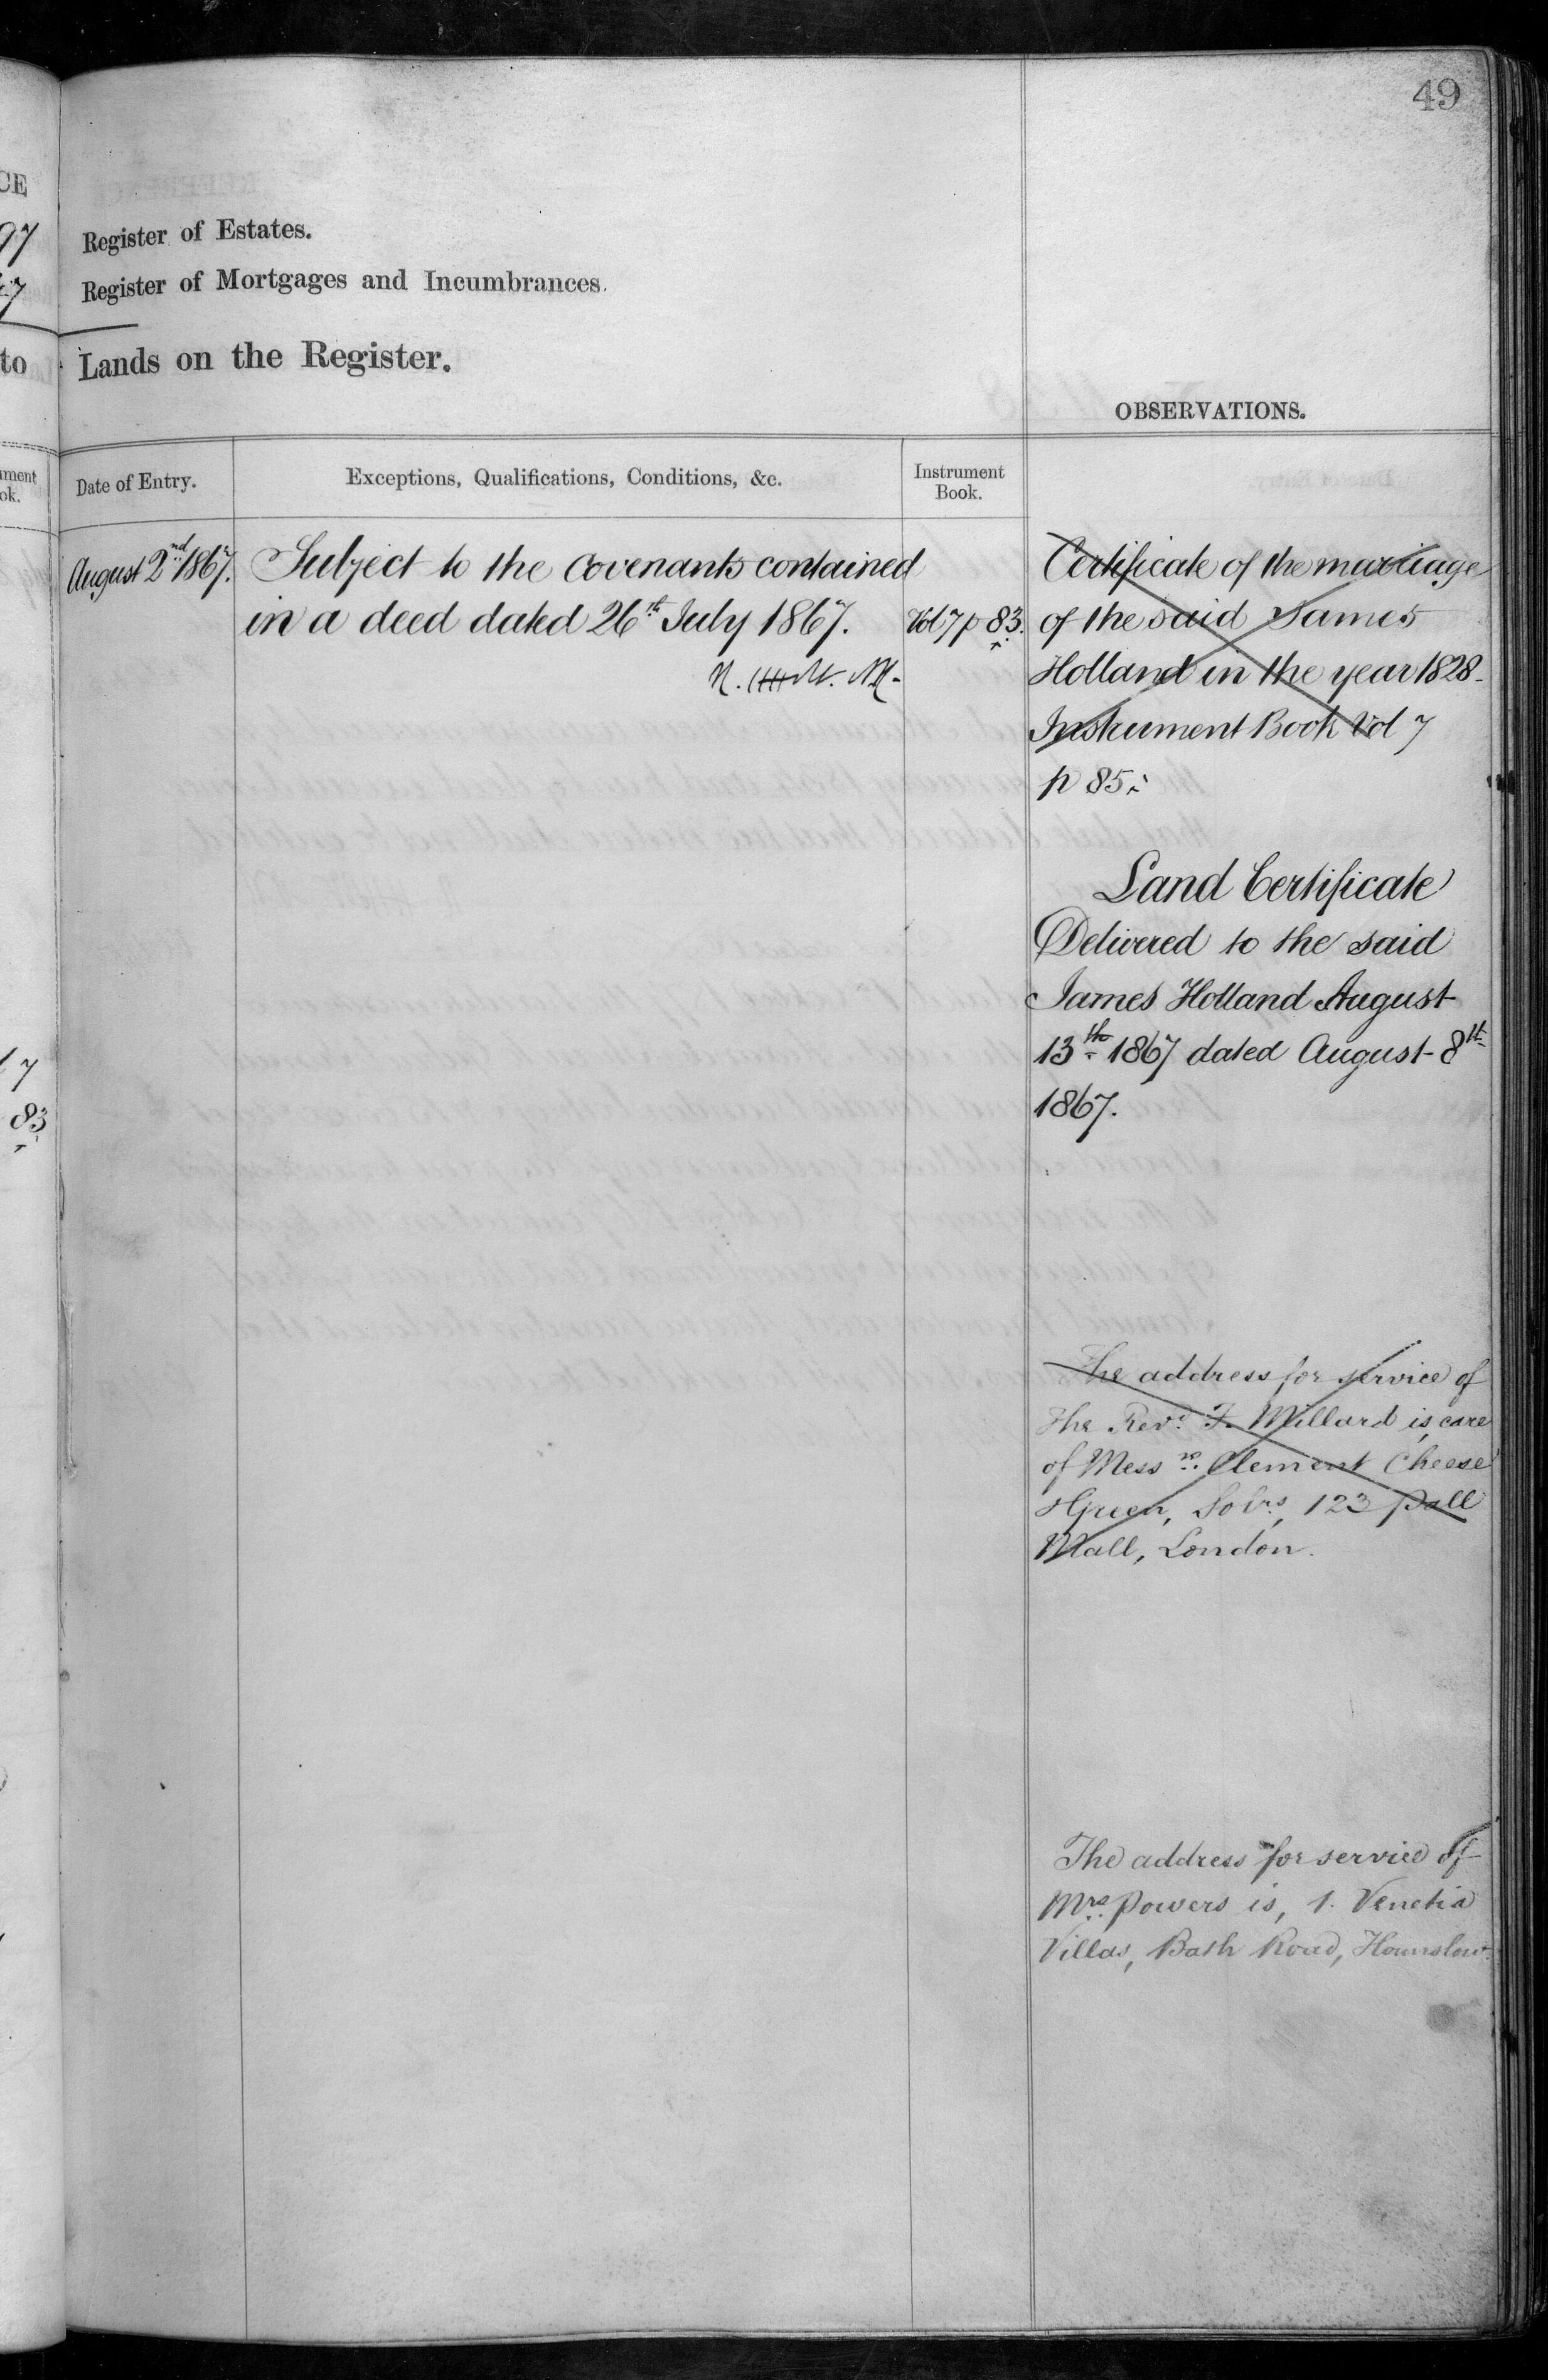 49
CE
97
47
to
ument
ok.
17
83
Register of Estates.
Register of Mortgages and Incumbrances.
Lands on the Register.
OBSERVATIONS.
Date of Entry.
Exceptions, Qualifications, Conditions, &c.
Instrument
Book.
August 2nd 1867.
Subject to the covenants contained
in a deed dated 26th July 1867.
Vol 7 p 83.
Certificate of the marriage
of the said James
Holland in the year 1828
Instrument Book Vol 7
p 85.
Land Certificate
Delivered to the said
James Holland August
13th 1867 dated August 8th
1867.
The address for service of
the Revd. F. Millard is, care
of Messrs. Clement Cheese
& Green, Solrs, 123 Pall
Mall, London.
The address for service of
Mrs. Powers is, 1. Venetia
Villas, Bath Road, Hounslow.